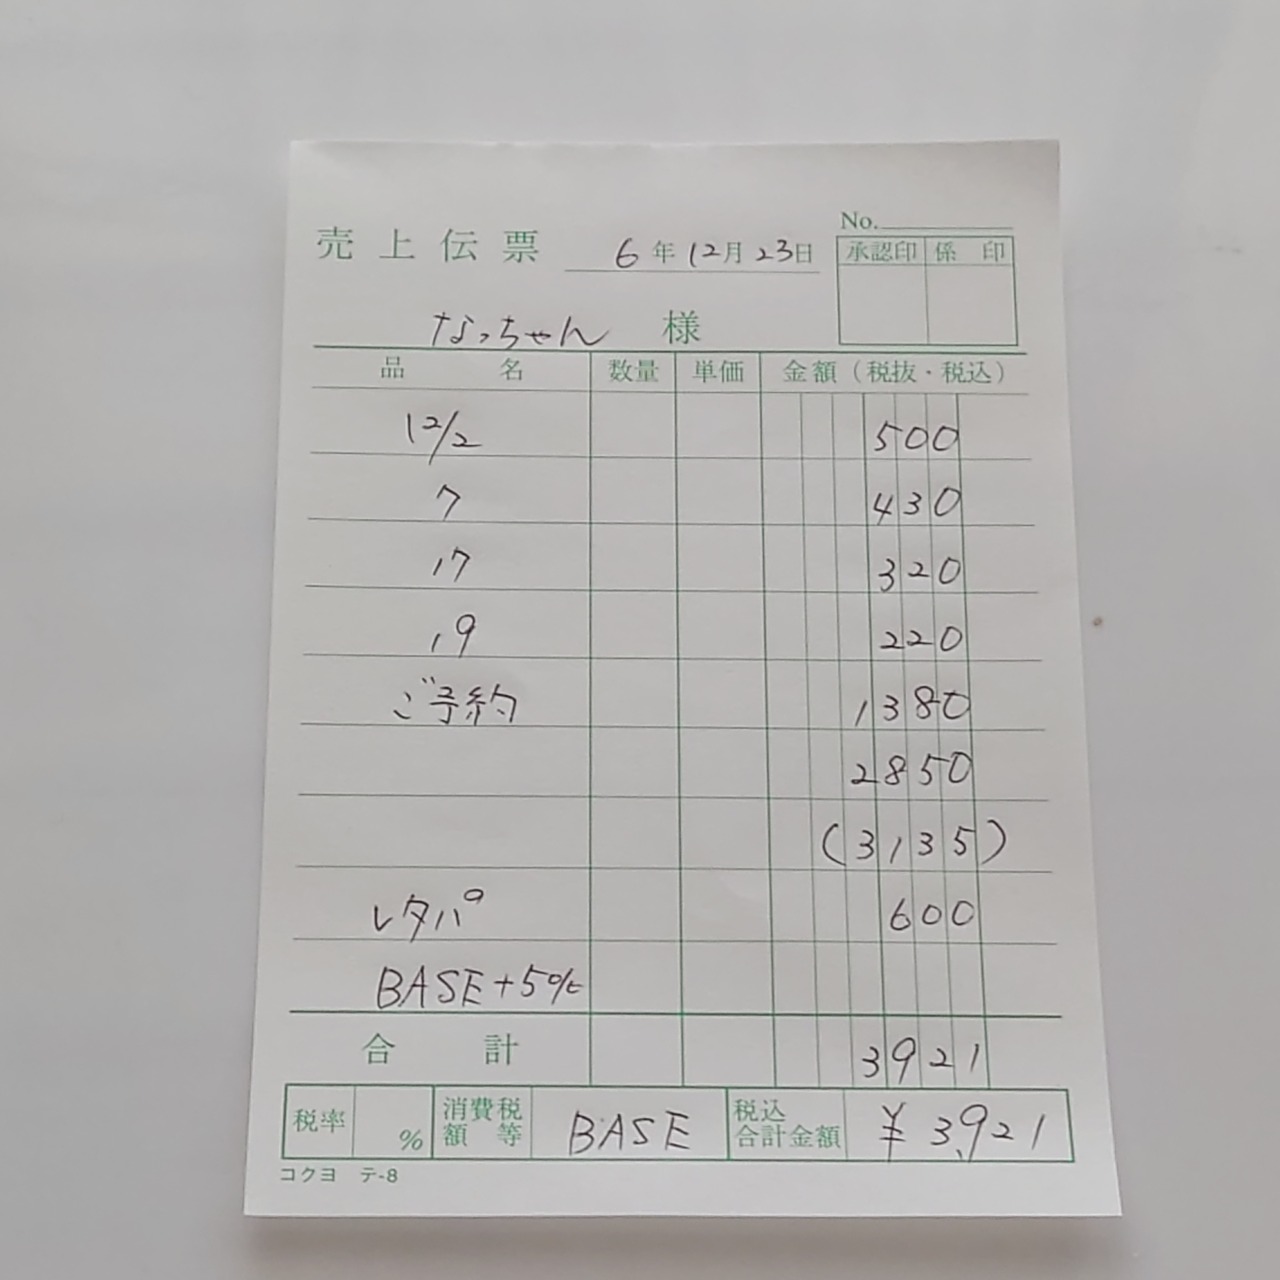 No.
売上伝票 6年12月23日
承認印 係印
なっちゃん 様
品名 数量 単価 金額(税抜・税込)
12/2 500
7 430
17 320
19 220
ご予約 1380
2850
(3135)
レタパ 600
BASE+5%
合計 3921
税率 % 消費税額等 BASE 税込合計金額 ¥3,921
コクヨ テ-8